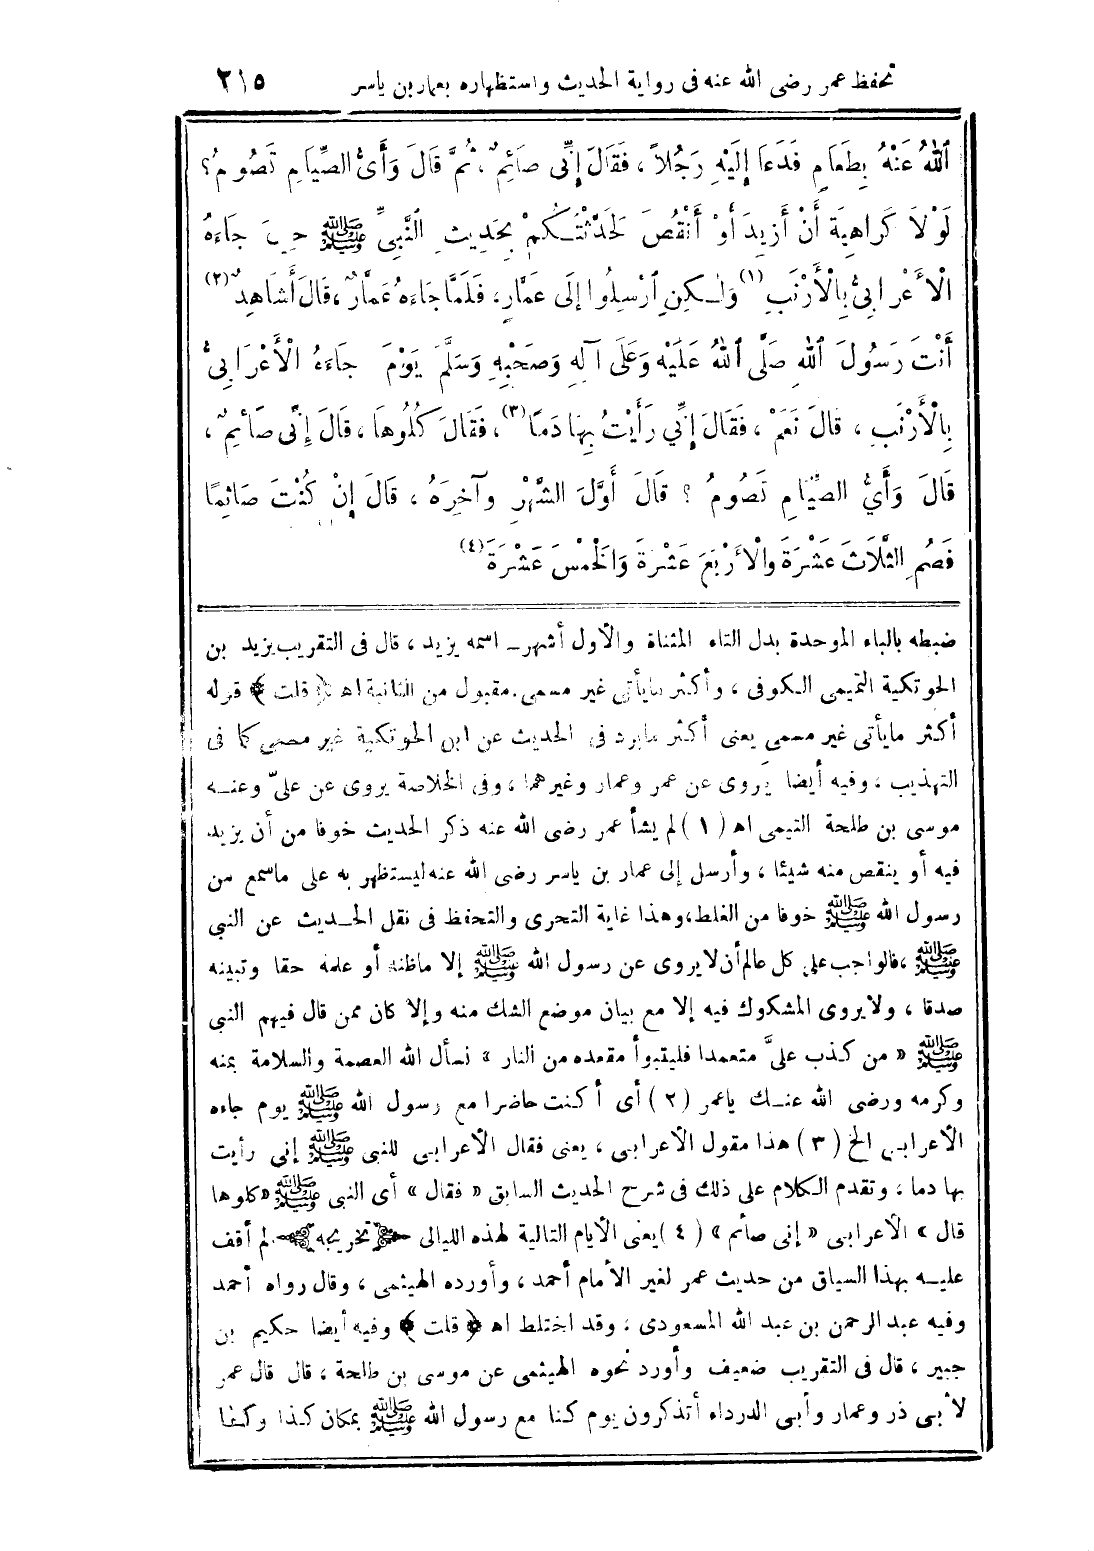 تحفظ عمر رضى الله عنه فى رواية الحديث واستظهاره بعمار بن ياسر ٢١٥
ٱللهُ عَنْهُ بِطَعَامٍ فَدَعَا إِلَيْهِ رَجُلاً ، فَقَالَ إِنِّى صَائِمٌ ، ثُمَّ قَالَ وَأَىُّ الصِّيَامِ تَصُومُ ؟
لَوْلاَ كَرَاهِيَةَ أَنْ أَزِيدَ أَوْ أَنْقُصَ لَحَدَّثْتُكُمْ بِحَدِيثِ النَّبِىِّ ﷺ حِينَ جَاءَهُ
الْأَعْرَابِىُّ بِالْأَرْنَبِ (١) وَلٰكِنِ ٱرْسِلُوا إِلَى عَمَّارٍ، فَلَمَّا جَاءَهُ عَمَّارٌ ، قَالَ أَشَاهِدٌ (٢)
أَنْتَ رَسُولَ ٱللهِ صَلَّى ٱللهُ عَلَيْهِ وَعَلَى آلِهِ وَصَحْبِهِ وَسَلَّمَ يَوْمَ جَاءَهُ الْأَعْرَابِىُّ
بِالْأَرْنَبِ ، قَالَ نَعَمْ ، فَقَالَ إِنِّي رَأَيْتُ بِهَا دَمًا (٣) ، فَقَالَ كُلُوهَا ، قَالَ إِنِّى صَائِمٌ ،
قَالَ وَأَىُّ الصِّيَامِ تَصُومُ ؟ قَالَ أَوَّلَ الشَّهْرِ وَآخِرَهُ ، قَالَ إِنْ كُنْتَ صَائِمًا
فَصُمِ الثَّلَاثَ عَشْرَةَ وَالْأَرْبَعَ عَشْرَةَ وَالْخَمْسَ عَشْرَةَ (٤)
ضبطه بالباء الموحدة بدل التاء المثناة والأول أشهر ــ اسمه يزيد ، قال فى التقريب يزيد بن
الحوتكية التميمى الكوفى ، وأكثر ما يأتى غير مسمى . مقبول من الثانية اه ﴿ قلت ﴾ قوله
أكثر ما يأتى غير مسمى يعنى أكثر ما يرد فى الحديث عن ابن الحوتكية غير مسمى كما فى
التهذيب ، وفيه أيضا يروى عن عمر وعمار وغيرهما ، وفى الخلاصة يروى عن علىّ وعنه
موسى بن طلحة التيمى اه (١) لم يشأ عمر رضى الله عنه ذكر الحديث خوفا من أن يزيد
فيه أو ينقص منه شيئا ، وأرسل إلى عمار بن ياسر رضى الله عنه ليستظهر به على ما سمع من
رسول الله ﷺ خوفا من الغلط، وهذا غاية التحرى والتحفظ فى نقل الحديث عن النبى
ﷺ ، فالواجب على كل عالم أن لا يروى عن رسول الله ﷺ إلا ما ظنه أو علمه حقا وتبينه
صدقا ، ولا يروى المشكوك فيه إلا مع بيان موضع الشك منه وإلا كان ممن قال فيهم النبى
ﷺ « من كذب علىَّ متعمدا فليتبوأ مقعده من النار » نسأل الله العصمة والسلامة بمنه
وكرمه ورضى الله عنك يا عمر (٢) أى أكنت حاضرا مع رسول الله ﷺ يوم جاءه
الأعرابى الخ (٣) هذا مقول الأعرابى ، يعنى فقال الأعرابى للنبى ﷺ إنى رأيت
بها دما ، وتقدم الكلام على ذلك فى شرح الحديث السابق « فقال » أى النبى ﷺ « كلوها
قال » الأعرابى « إنى صائم » (٤) يعنى الأيام التالية لهذه الليالى ﴿ تخريجه ﴾ لم أقف
عليه بهذا السياق من حديث عمر لغير الأمام أحمد ، وأورده الهيثمى ، وقال رواه أحمد
وفيه عبد الرحمن بن عبد الله المسعودى ، وقد اختلط اه ﴿ قلت ﴾ وفيه أيضا حكيم بن
جبير ، قال فى التقريب ضعيف وأورد نحوه الهيثمى عن موسى بن طلحة ، قال قال عمر
لأبى ذر وعمار وأبى الدرداء أتذكرون يوم كنا مع رسول الله ﷺ بمكان كذا وكذا